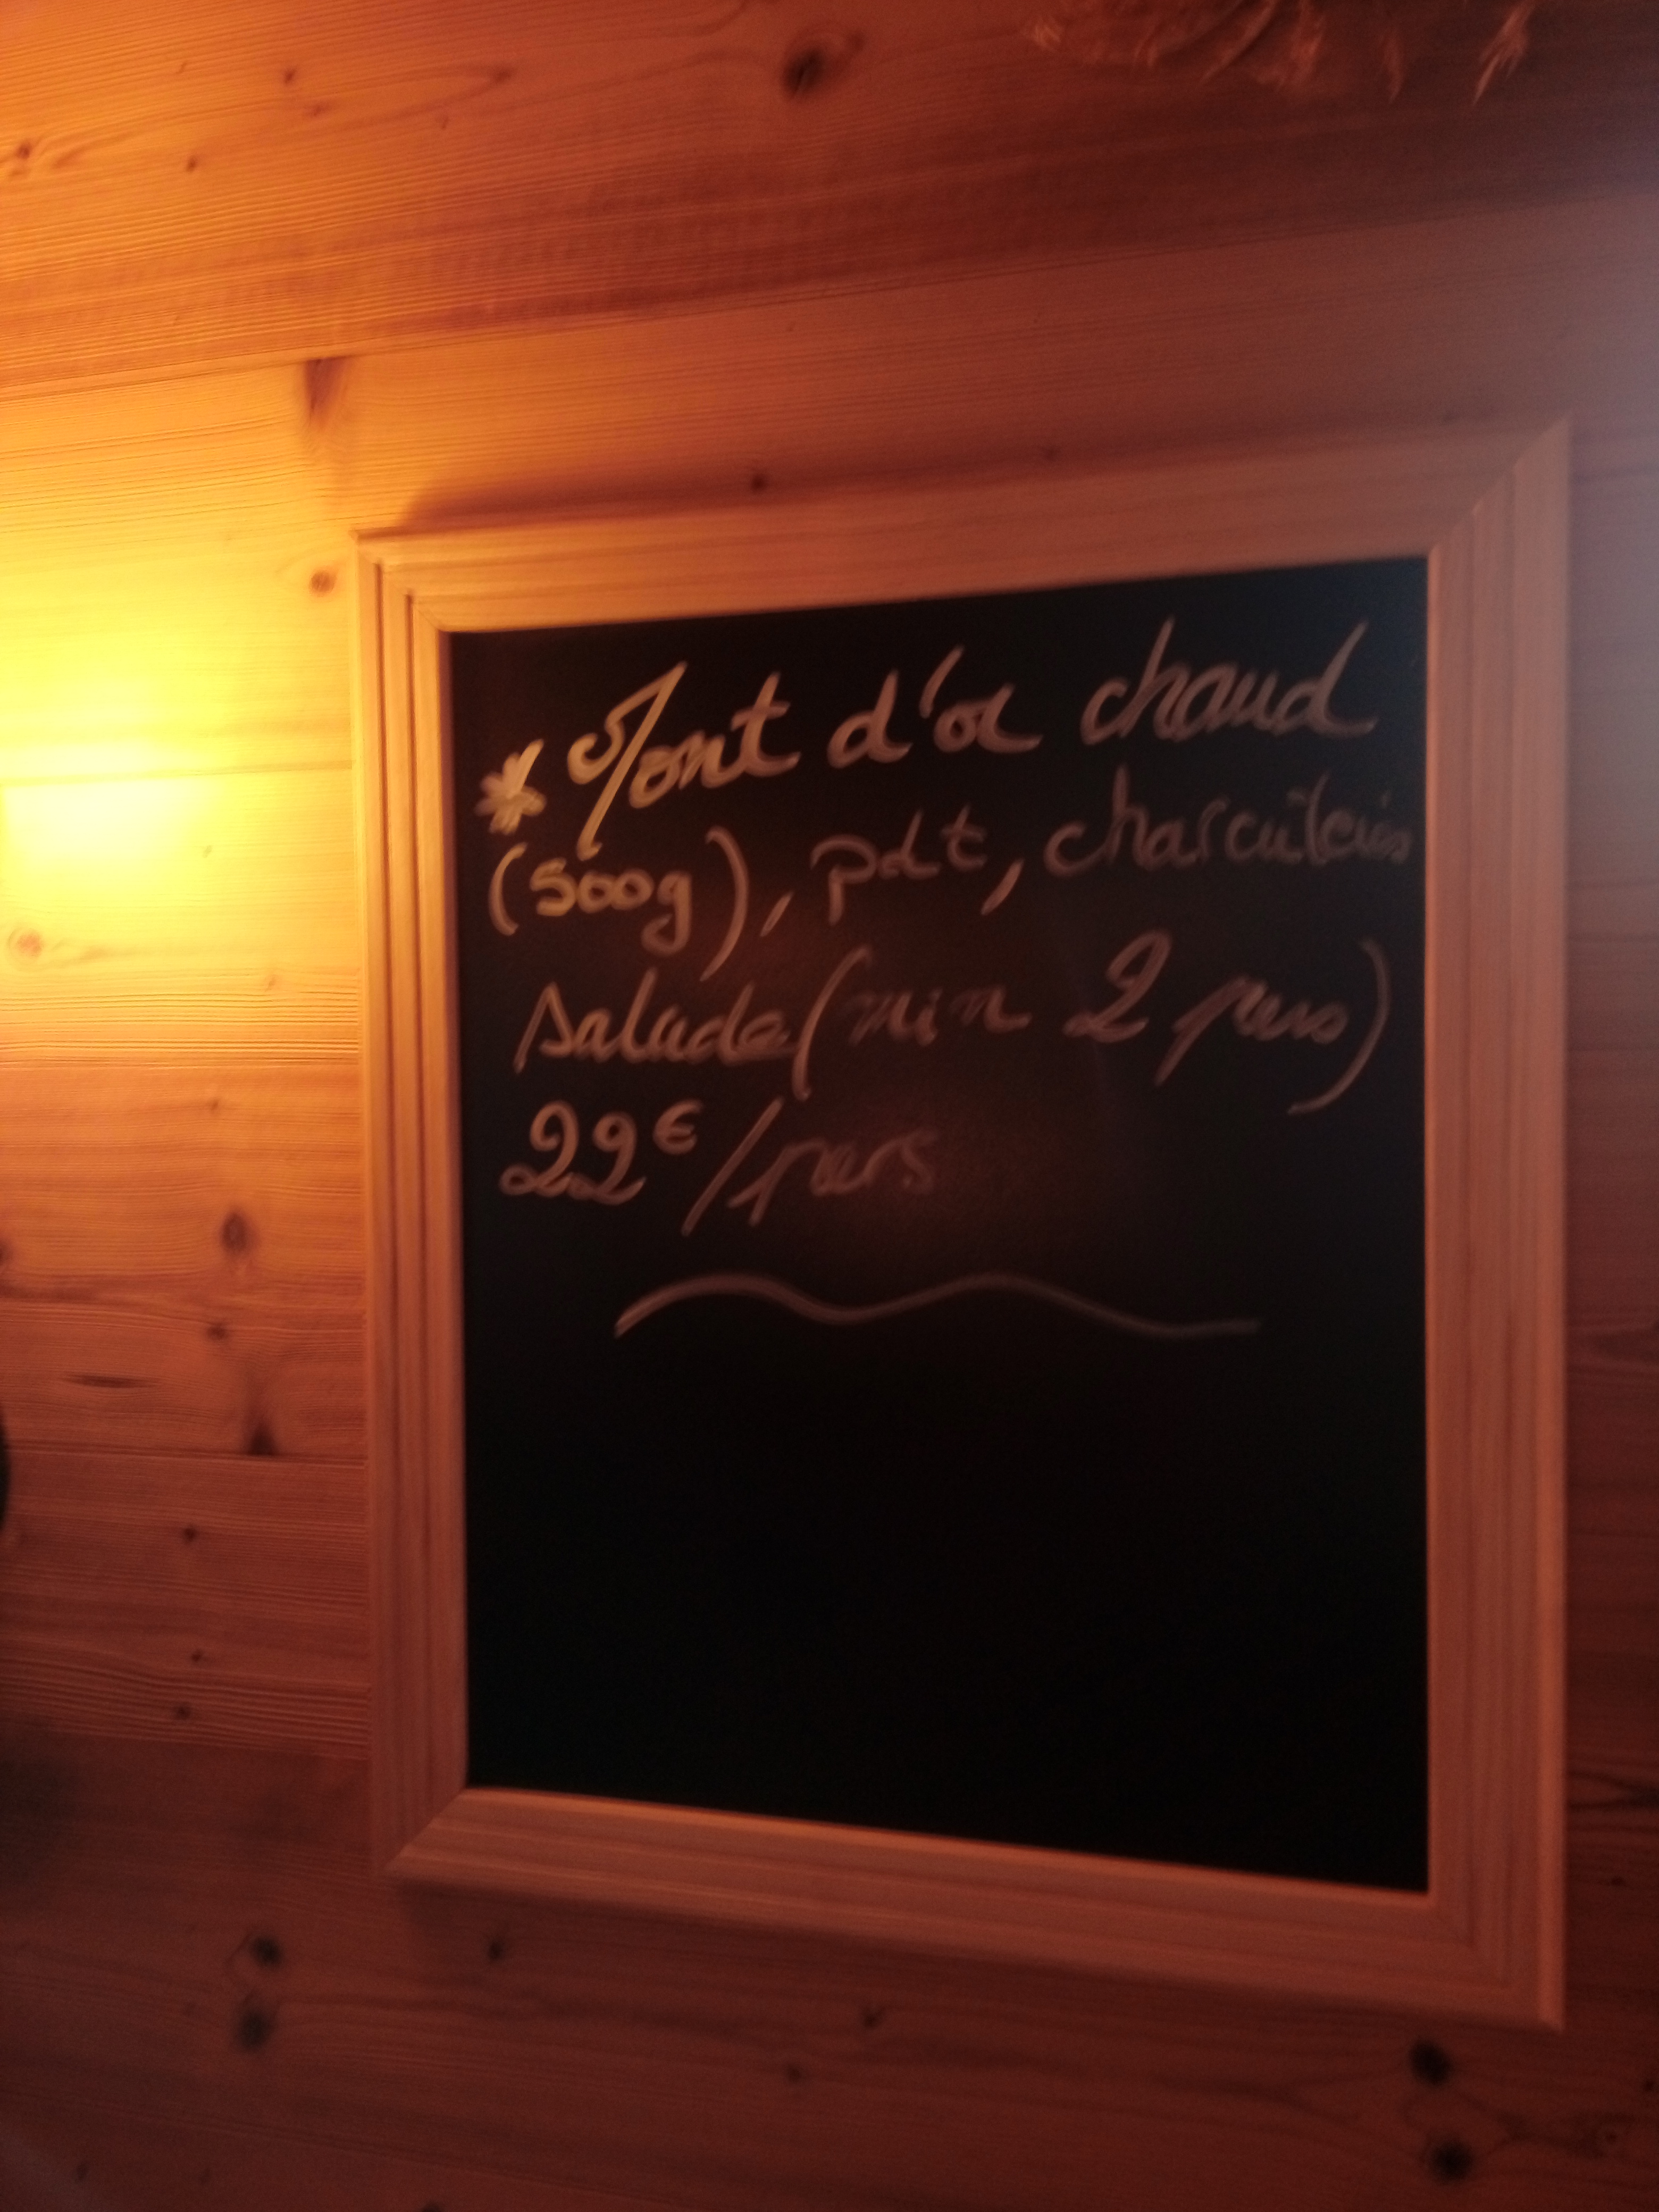 * Mont d'or chaud
(500g), pdt, charcuteries
salade (min 2 pers)
22€/pers